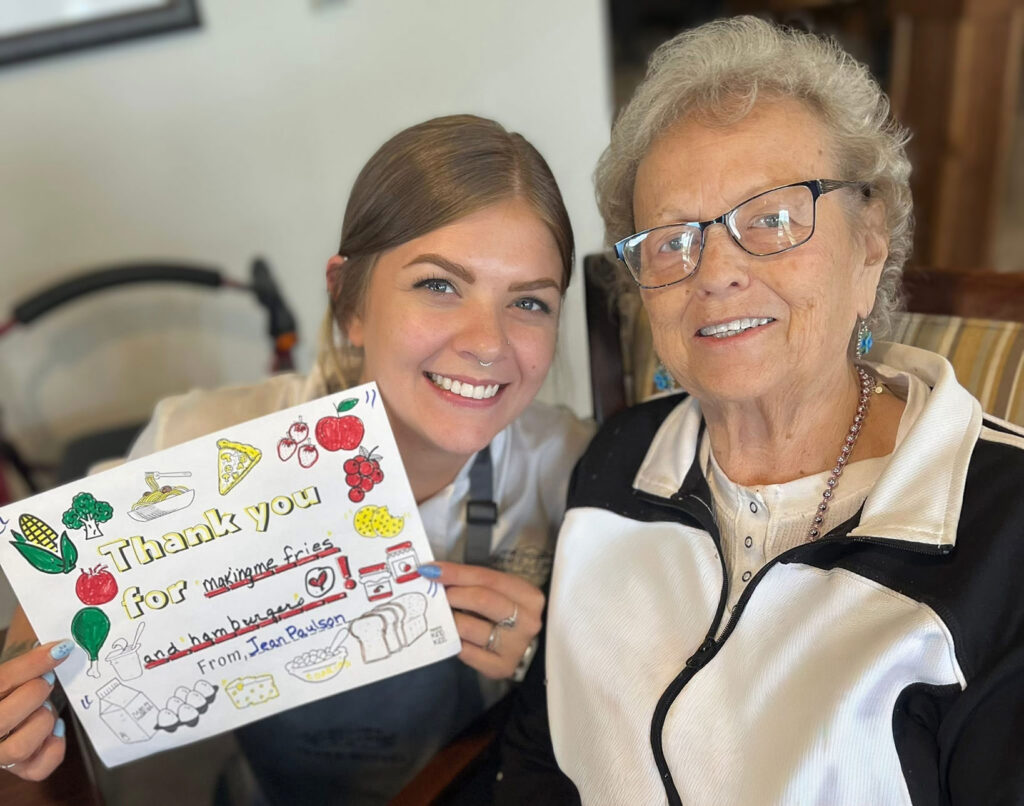 Thank you
for making me fries
and hamburgers!
From, Jean Paulson